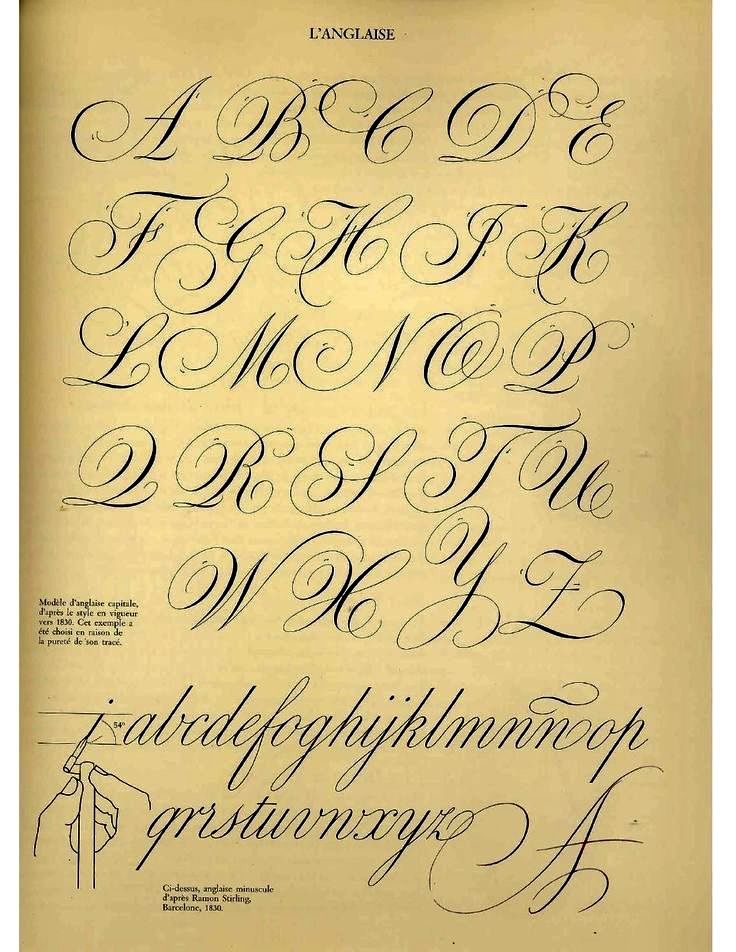 L'ANGLAISE
A B C D E
F G H I K
L M N O P
Q R S T U
W X Y Z
Modèle d'anglaise capitale,
d'après le style en vigueur
vers 1830. Cet exemple a
été choisi en raison de
la pureté de son tracé.
i 54° abcdefoghijklmnñop
qrrstuvnvxyz A
Ci-dessus, anglaise minuscule
d'après Ramon Stirling,
Barcelone, 1830.